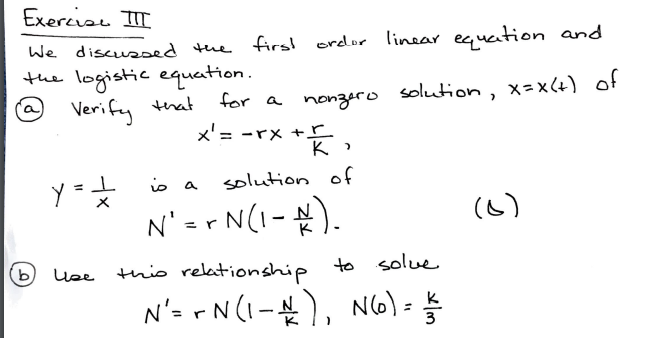 Exercise III
We discussed the first order linear equation and
the logistic equation.
(a) Verify that for a nonzero solution, x=x(t) of
x' = -rx + r/K ,
y = 1/x is a solution of
N' = r N(1 - N/K). (6)
(b) Use this relationship to solve
N' = r N(1 - N/K), N(0) = K/3